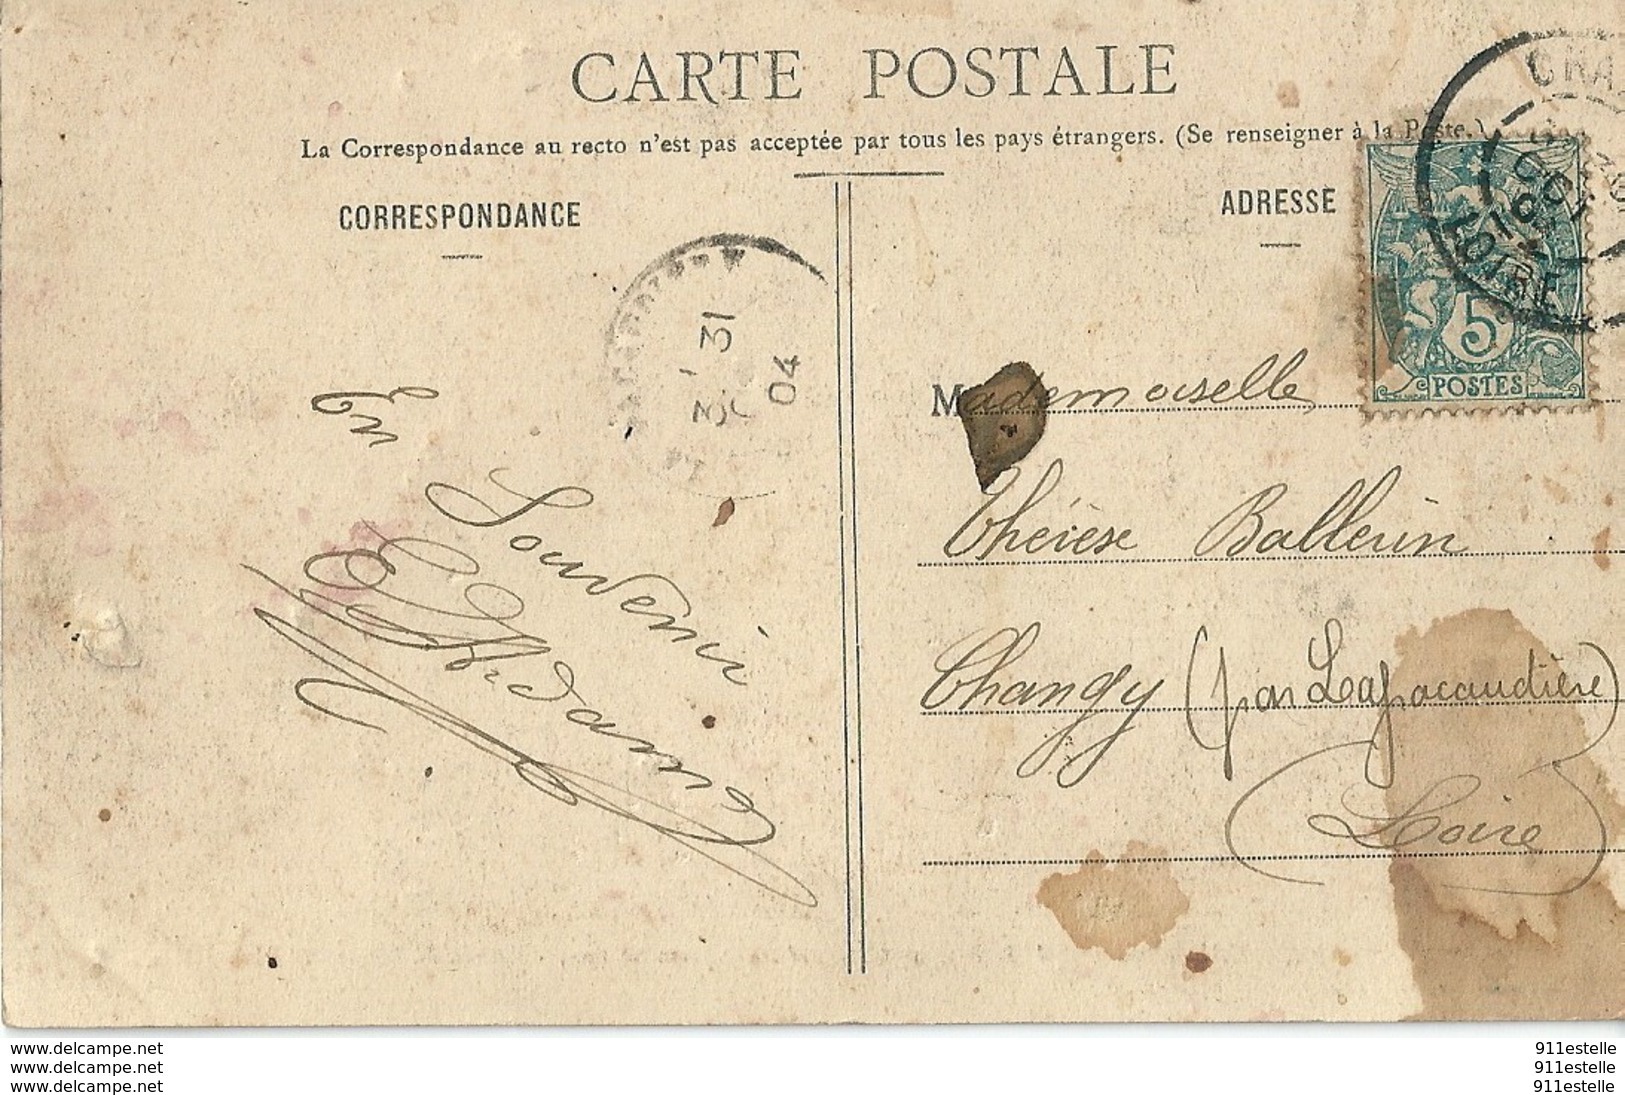 CARTE POSTALE
La Correspondance au recto n'est pas acceptée par tous les pays étrangers. (Se renseigner à la Poste.)
CORRESPONDANCE
ADRESSE
31
04
5
POSTES
LOIRE
En
Souvenir
Mademoiselle
Thérèse Ballerin
Changy (par Lapacaudière)
(Loire)
www.delcampe.net
www.delcampe.net
www.delcampe.net
911estelle
911estelle
911estelle